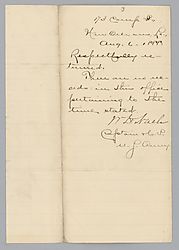 Camp St.
New Orleans, La.
Aug. 6,
Respectfully re-
turned.
There are no rec-
ords in this office
pertaining to the
time stated.
Captain
U.S. Army